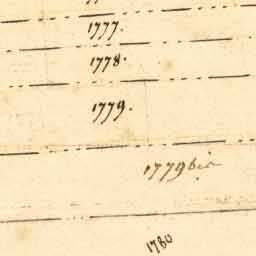 1777.
1778.
1779.
1779 bis
1780